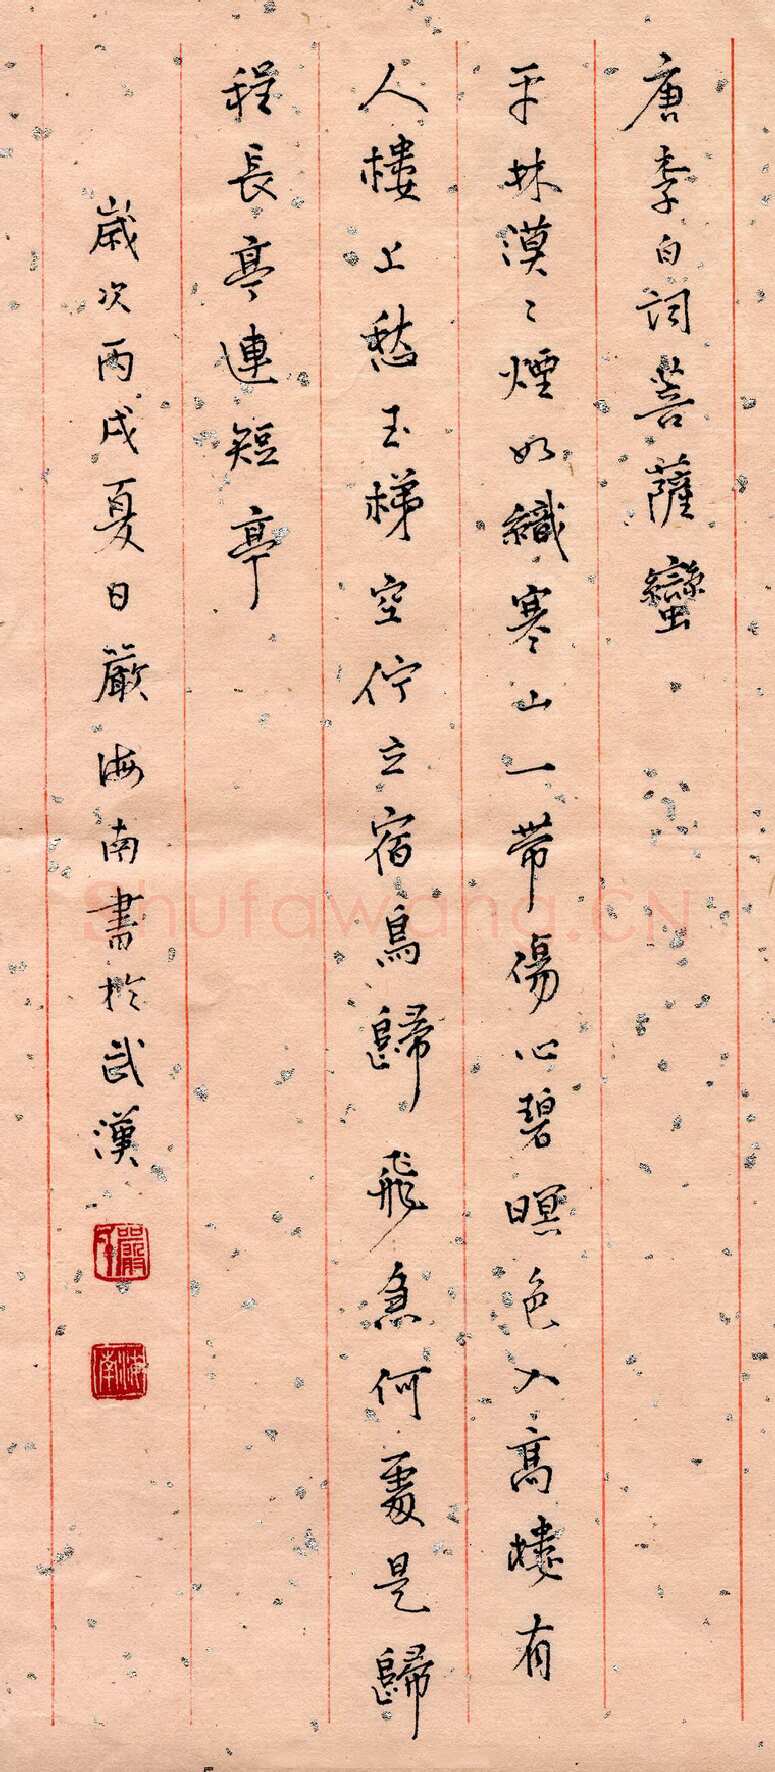 唐李白詞菩薩蠻
平林漠〻煙如織寒山一帶傷心碧暝色入高樓有
人樓上愁玉梯空佇立宿鳥歸飛急何處是歸
程長亭連短亭
歲次丙戌夏日嚴海南書於武漢
海南
Shufawang.CN